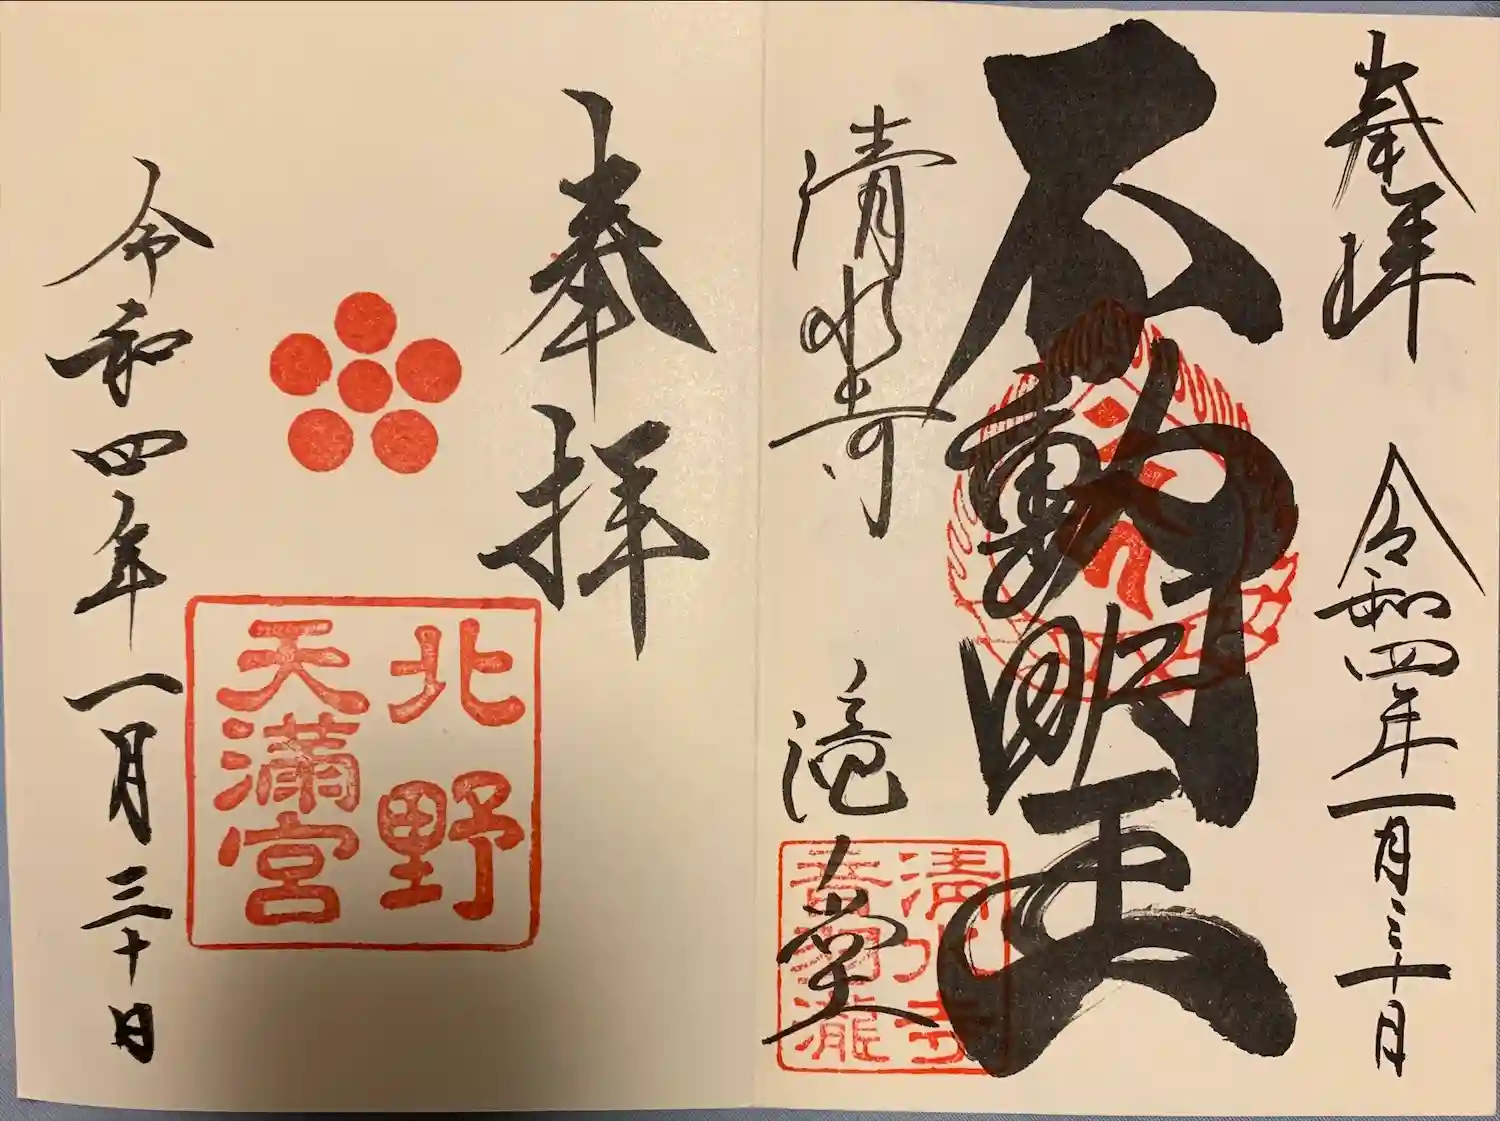 奉拝
令和四年一月三十日
不動明王
清水寺
滝之堂
清水寺
音羽瀧
奉拝
北野
天満宮
令和四年一月三十日